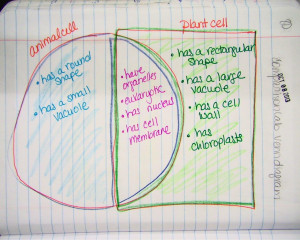 animal cell
• has a round
shape
• has a small
vacuole
• have
organelles
• eukaryotic
• has nucleus
• has cell
membrane
plant cell
• has a rectangular
shape
• has a large
vacuole
• has a cell
wall
• has
chloroplasts
OCT 08 2013
venn diagram